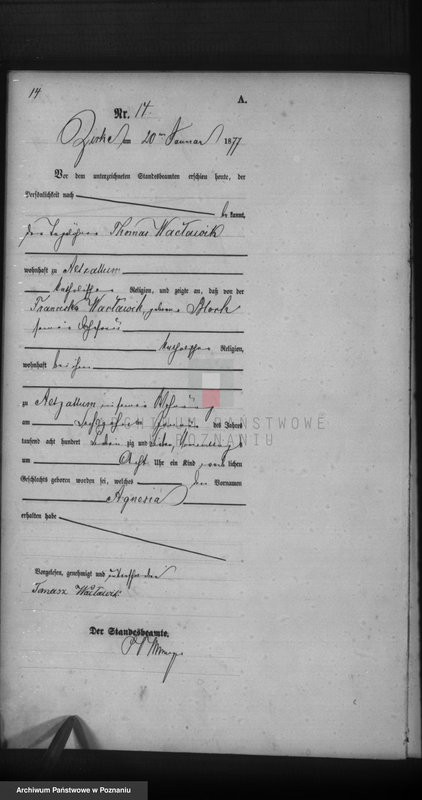 14
A.
Nr. 14.
Zirke am 20ten Januar 1877
Vor dem unterzeichneten Standesbeamten erschien heute, der
Persönlichkeit nach
be kannt,
der Tagelöhner Thomas Wacławik
wohnhaft zu
katholischer Religion, und zeigte an, daß von der
Franciska Wacławik, geborene Block
seiner Ehefrau
katholischer Religion,
wohnhaft bei ihm
zu in seiner Wohnung
am Januar des Jahres
tausend acht hundert sieben zig und sieben, Vormittags
um Acht Uhr ein Kind lichen
Geschlechts geboren worden sei, welches den Vornamen
Agnesia
erhalten habe
Vorgelesen, genehmigt und
Tomasz Wacławik
Der Standesbeamte.
ARCHIWUM PAŃSTWOWE
POZNANIU
14
Archiwum Państwowe w Poznaniu